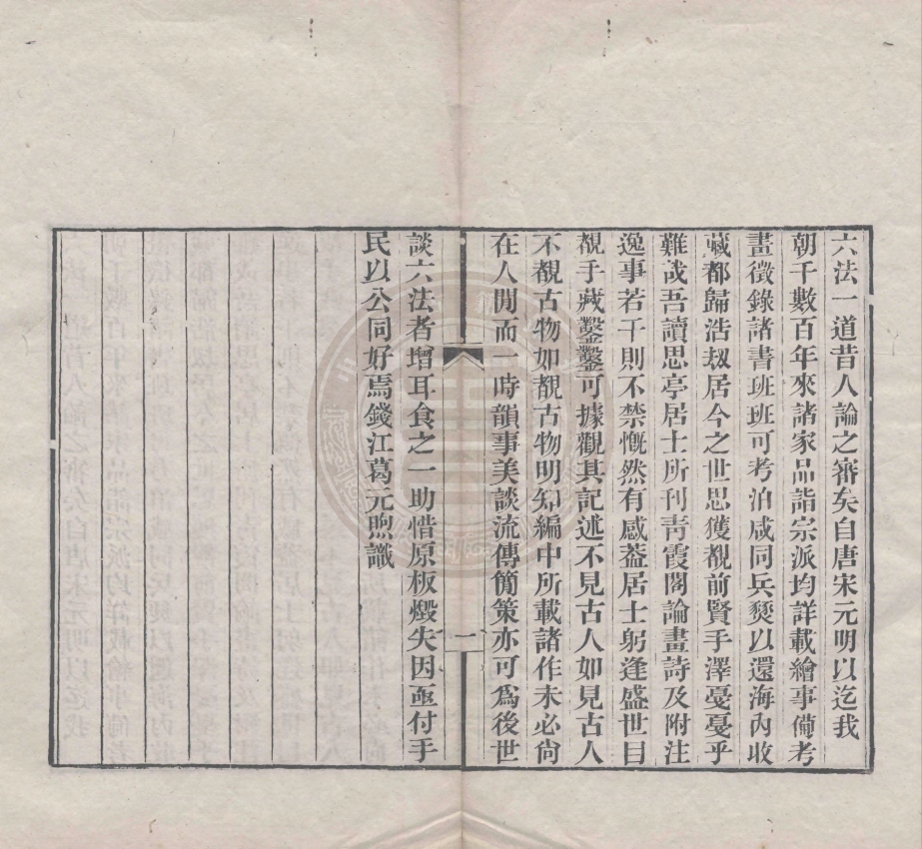 六法一道昔人論之審矣自唐宋元明以迄我
朝千數百年來諸家品詣宗派均詳載繪事備考
畫徵錄諸書班班可考洎咸同兵燹以還海內收
藏都歸浩刼居今之世思獲覩前賢手澤戞戞乎
難哉吾讀思亭居士所刊靑霞閣論畫詩及附注
逸事若干則不禁慨然有感葢居士躬逢盛世目
覩手藏鑿鑿可據觀其記述不見古人如見古人
不覩古物如覩古物明知編中所載諸作未必尙
在人閒而一時韻事美談流傳簡策亦可爲後世
一
談六法者增耳食之一助惜原板燬失因亟付手
民以公同好焉錢江葛元煦識